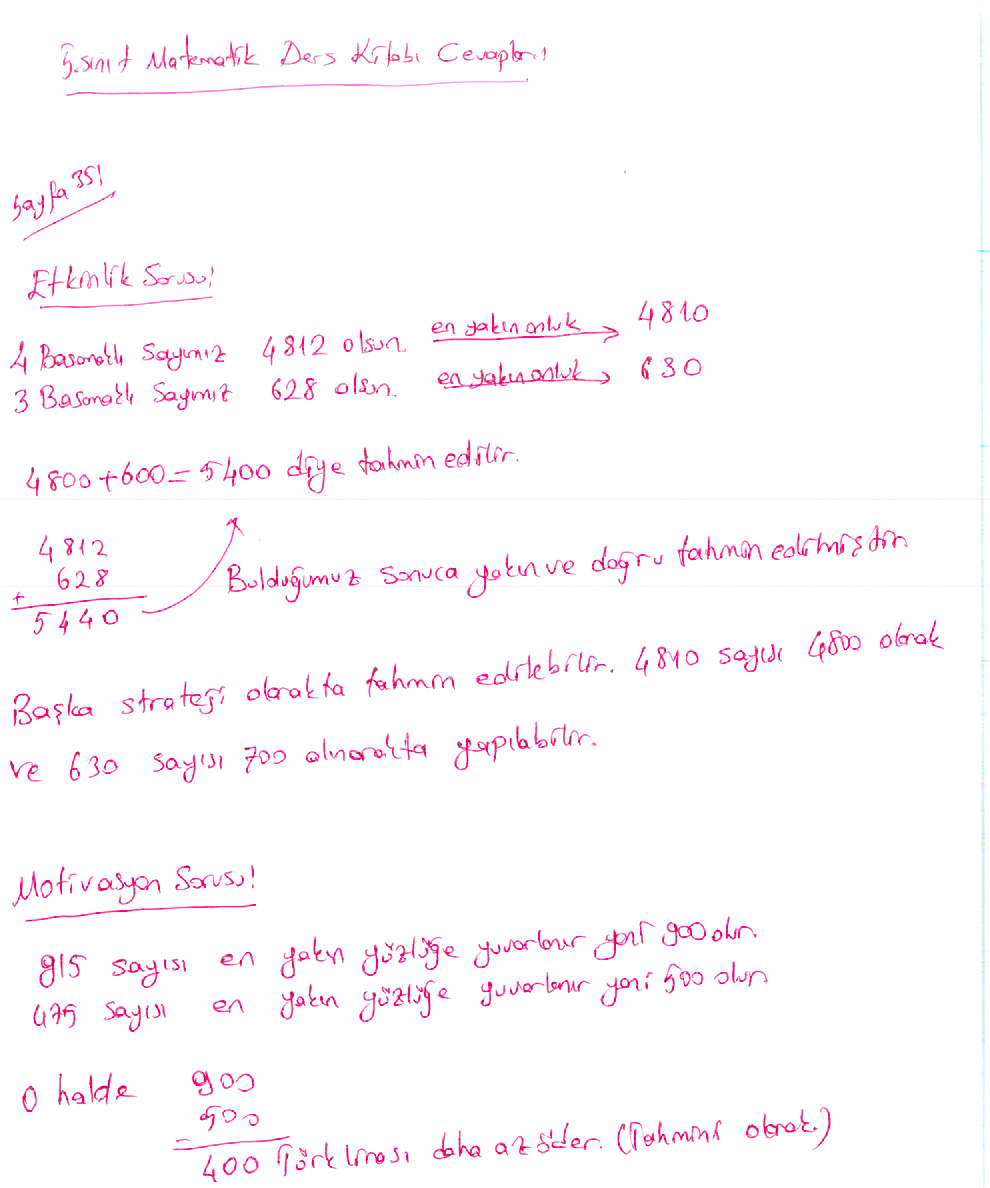 5.sınıf Matematik Ders Kitabı Cevapları
Sayfa 351
Etkinlik Sorusu!
4 Basamaklı Sayımız 4812 olsun. en yakın onluk → 4810
3 Basamaklı Sayımız 628 olsun. en yakın onluk → 630
4800+600=5400 diye tahmin edilir.
4812
+ 628
5440
Bulduğumuz sonuca yakın ve doğru tahmin edilmiştir
Başka strateji olarakta tahmin edilebilir. 4810 sayısı 4800 olarak
ve 630 sayısı 700 alınarakta yapılabilir.
Motivasyon Sorusu!
915 sayısı en yakın yüzlüğe yuvarlanır yani 900 olur.
475 sayısı en yakın yüzlüğe yuvarlanır yani 500 olur
O halde 900
500
- 400 Türk lirası daha az öder. (Tahmini olarak.)